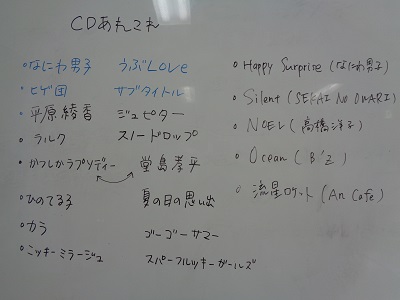 CDあれこれ
・なにわ男子 うぶLove
・ヒゲ団 サブタイトル
・平原綾香 ジュピター
・ラルク スノードロップ
・かつしかラプソディー 堂島孝平
・ひのてる子 夏の日の思い出
・カラ ゴーゴーサマー
・ニッキーミラージュ スパーフルッキーガールズ
・Happy Surprise (なにわ男子)
・Silent (SEKAI NO OWARI)
・NOEL (高橋洋子)
・Ocean (B'z)
・流星ロケット (An Cafe)